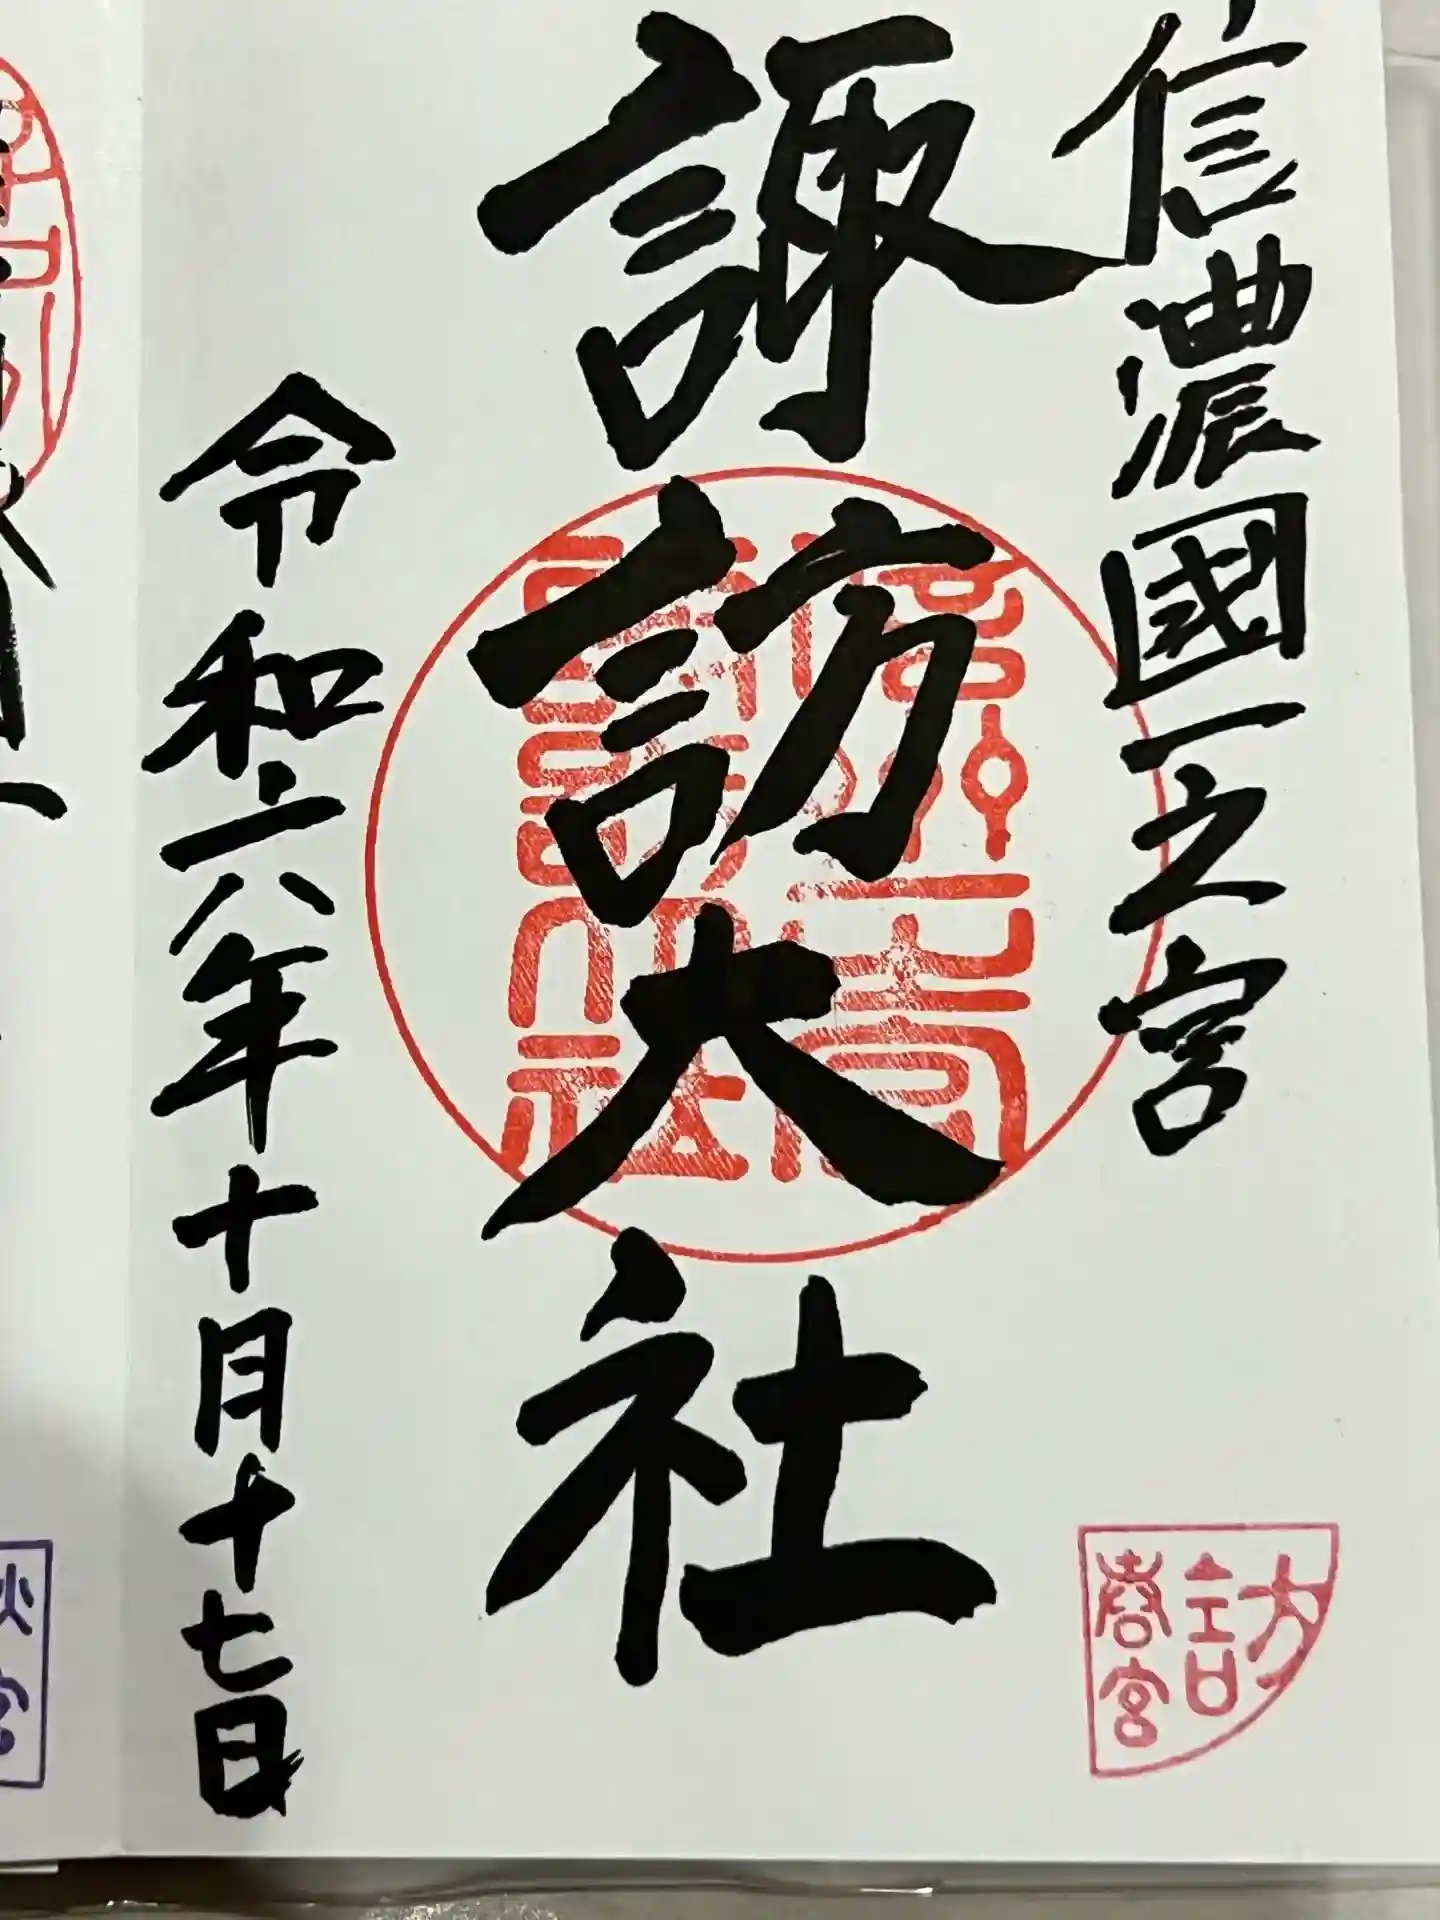 信濃國一之宮
諏訪大社
令和六年十月十七日
訪
春宮
秋宮